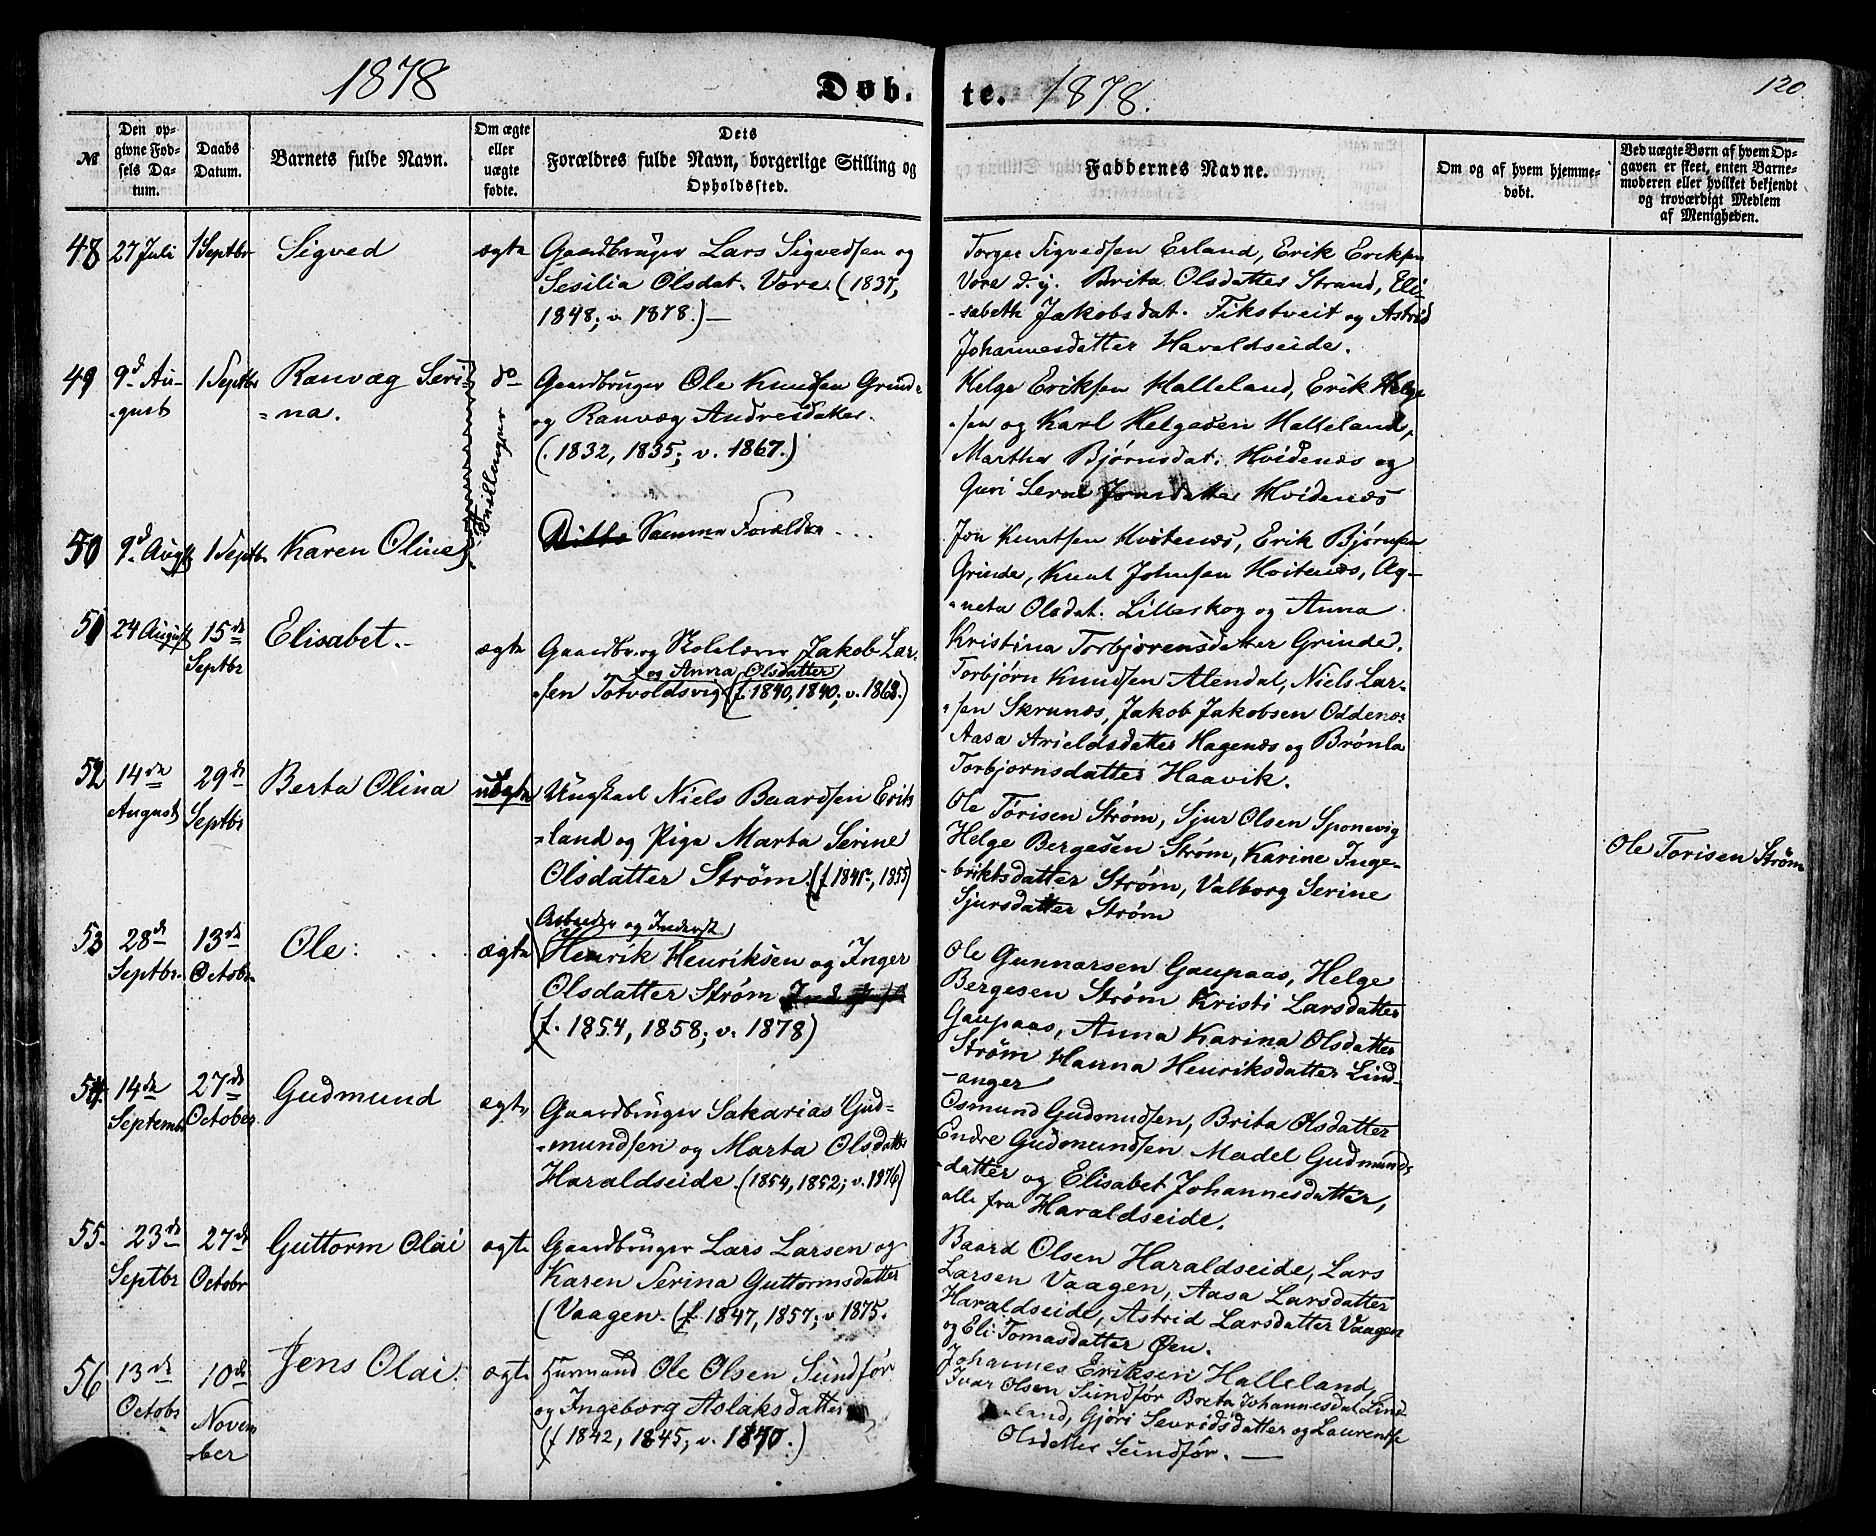 1878
Døb-
te.
1878.
120.
№
Den op-
givne Fød-
sels Da-
tum.
Daabs
Datum.
Barnets fulde Navn.
Om ægte
eller
uægte
fødte.
Dets
Forældres fulde Navn, borgerlige Stilling og
Opholdssted.
Faddernes Navne.
Om og af hvem hjemme-
døbt.
Ved uægte Børn af hvem Op-
gaven er skeet, enten Barne-
moderen eller hvilket bekjendt
og troværdigt Medlem
af Menigheden.
48
27 Juli
1 Septbr
Sigved
ægte
Gaardbruger Lars Sigvedsen og
Sesilia Olsdat. Vore (1837,
1848; v. 1878.)—
Torger Sigvedsen Erland, Erik Eriksen
Vore d. y. Brita Olsdatter Strand, Eli-
-sabeth Jakobsdat. Tikstveit og Astrid
Johannesdatter Haraldseide.
49
9d Au-
-gust
1 Septbr
Ranvæg Seri-
-na.
do
Tvillinger
Gaardbruger Ole Knudsen Grinde
og Ranvæg Andresdatter.
(1832, 1835; v. 1867.)
Helge Eriksen Halleland, Erik Helge
-sen og Karl Helgesen Halleland,
Martha Bjørnsdat. Hvidenæs og
Guri Serine Jonsdatter Hvidenæs
50
9d Augst
1 Septbr
Karen Oline
Ditto Samme Forældre ...
Jon Knutsen Hvitenæs, Erik Bjørnsen
Grinde, Knut Johnsen Hvitenæs, Ag-
-neta Olsdat. Lilleskog og Anna
Kristina Torbjørensdatter Grinde.
51
24 August
15de
Septbr
Elisabet.-
ægte
Gaardbr. og Skolelærer Jakob Lar-
og Anna Olsdatter
-sen Totvoldsvig (f. 1840, 1840; v. 1868.)
Torbjørn Knudsen Alendal, Niels Lar-
-sen Skrunæs, Jakob Jakobsen Oddenæs
Aasa Arieldsdatter Hagenæs og Brønla
Torbjornsdatter Haavik.
52
14de
August
29de
Septbr
Berta Olina
uægte
Ungkarl Niels Baardsen Eriks
-land og Pige Marta Serine
Olsdatter Strøm. (f 1845, 1855)
Ole Tørisen Strøm, Sjur Olsen Sponevig
Helge Bergesen Strøm, Karine Inge-
-briktsdatter Strøm, Valborg Serine
Sjursdatter Strøm
Ole Torisen Strøm
53
28de
Septbr.
13de
Octobr
Ole: . . .
ægte
Arbeider og Inderst
Henrik Henriksen og Inger
Olsdatter Strøm
(f. 1854, 1858; v. 1878)
Ole Gunnarsen Gaupaas, Helge
Bergesen Strøm Kristi Larsdatter
Gaupaas, Anna Karina Olsdatter
Strøm Hanna Henriksdatter Lind-
-anger
54.
14de
Septembr
27de
October
Gudmund
ægte
Gaardbruger Sakarias Gud-
-mundsen og Marta Olsdatter
Haraldseide. (1854, 1852; v. 1876)
Osmund Gudmudsen, Brita Olsdatter
Endre Gudmundsen Madel Gudmunds
-datter og Elisabet Johannesdatter,
alle fra Haraldseide.
55.
23de
Septbr
27de
Octobr
Guttorm Olai
ægte
Gaardbruger Lars Larsen og
Karen Serina Guttormsdatter
(Vaagen. (f. 1847, 1857; v 1875.
Baard Olsen Haraldseide, Lars
Larsen Vaagen, Aasa Larsdatter
Haraldseide, Astrid Larsdatter Vaagen
og Eli Tomasdatter Øen.
56
13de
Octobr
10de
Novem
-ber
Jens Olai.
ægte
Husmand Ole Olsen Sundfør
og Ingeborg Aslaksdatter
(f 1842, 1845; v. 1870.)
Johannes Eriksen Halleland,
Ivar Olsen Sundfør Brita Johannesdat. Lind-
land, Gjøri Sevridsdatter og Laurentse
Olsdatter Sundfør. —